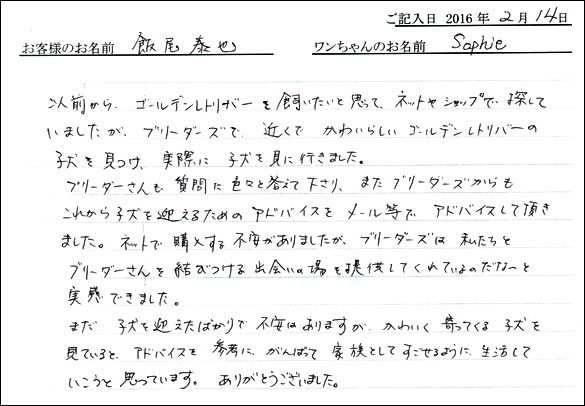 ご記入日 2016 年 2 月 14 日
お客様のお名前 飯尾泰也 ワンちゃんのお名前 Sophie
以前から、ゴールデンレトリバーを飼いたいと思って、ネットやショップで探して
いましたが、ブリーダーズで、近くで かわいらしい ゴールデンレトリバーの
子犬を見つけ、実際に 子犬を見に行きました。
ブリーダーさんも 質問に色々と答えて下さり、また ブリーダーズからも
これから子犬を迎えるための アドバイスを メール等で、アドバイスして頂き
ました。ネットで 購入する 不安がありましたが、ブリーダーズは 私たちと
ブリーダーさんを 結びつける 出会いの場を提供してくれているのだな〜と
実感できました。
まだ 子犬を迎えたばかりで 不安はありますが、かわいく 寄ってくる 子犬を
見ていると、アドバイスを 参考に、がんばって 家族として すごせるように、生活して
いこうと 思っています。 ありがとうございました。